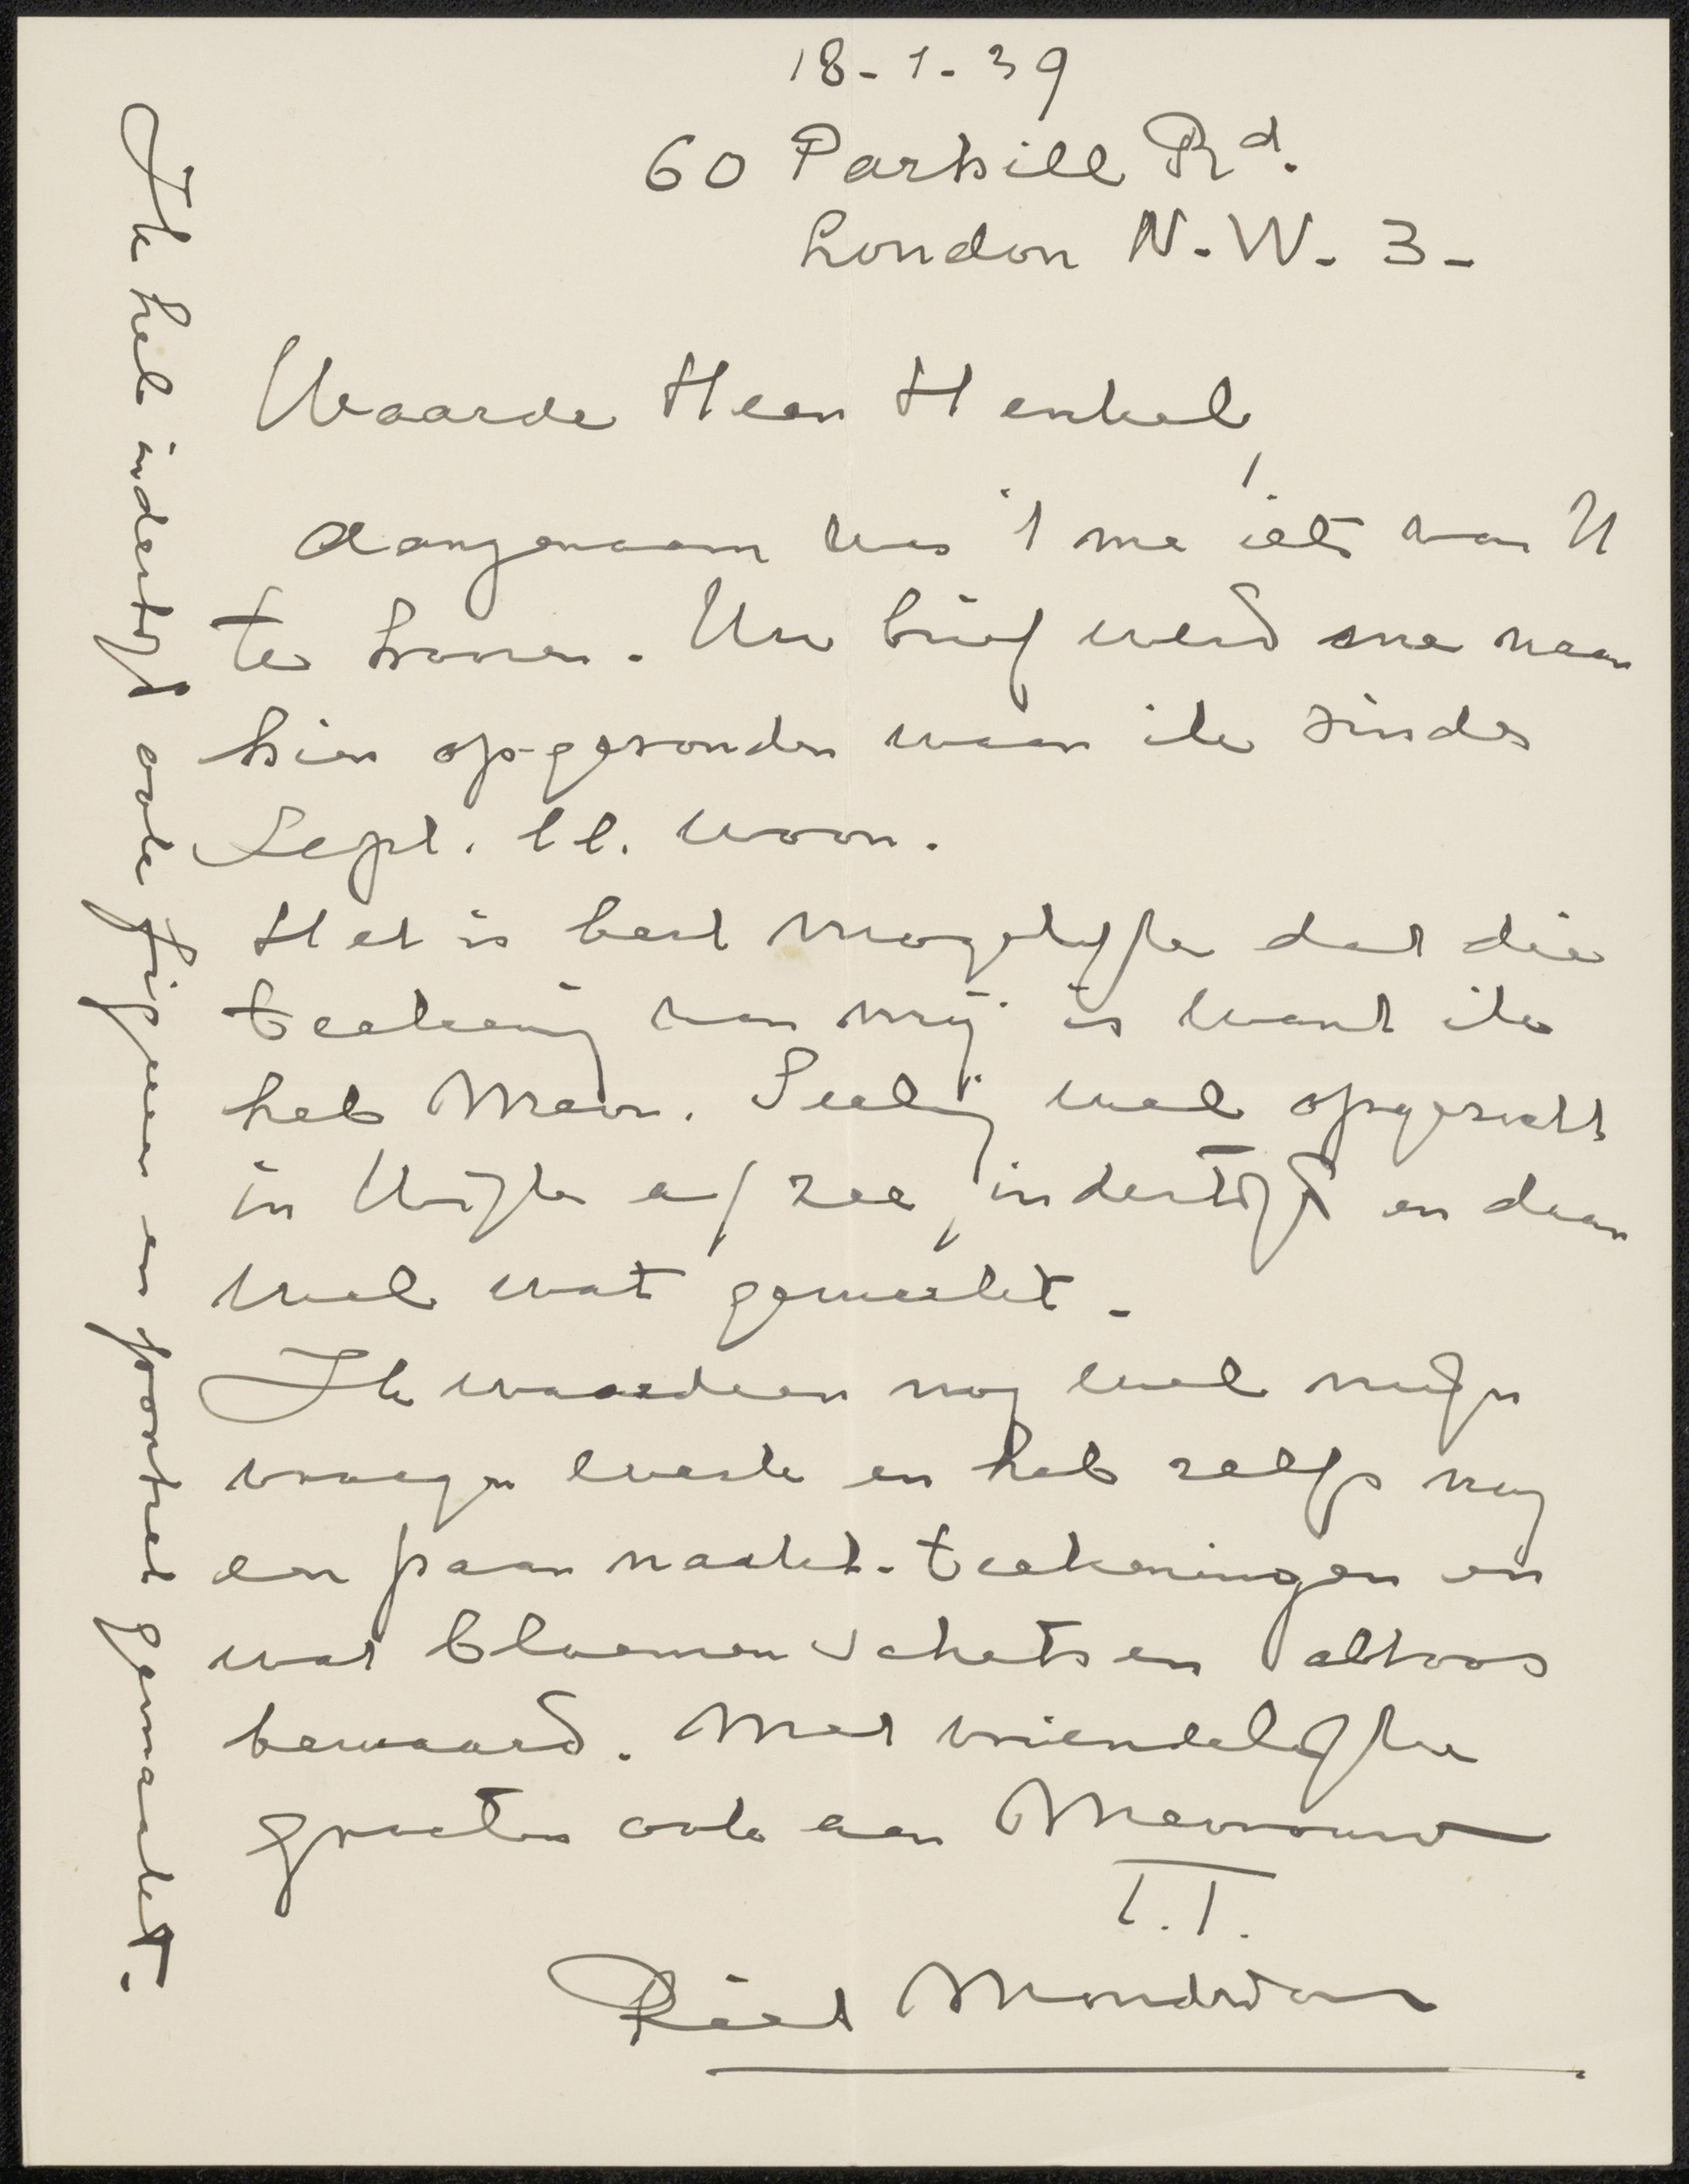 18-1-39
60 Parkhill Rd.
London N.W. 3-
Waarde Heer Henkel,
Aangenaam was 't me iets van U
te hooren. Uw brief werd me naar
hier op-gezonden waar ik sinds
Sept. ll. woon.
Het is best mogelijk dat die
teekening van mij is want ik
heb Mevr. Seelig wel opgezocht
in Wijk a/ zee, indertijd en daar
wel wat gemaakt.
Ik waardeer nog wel mijn
vroeger werk en heb zelfs nog
een paar naakt-teekeningen en
wat bloemenschetsen altoos
bewaard. Met vriendelijke
groeten ook aan Mevrouw
T.T.
Piet Mondriaan
Ik heb indertijd ook figuur en portret gemaakt.